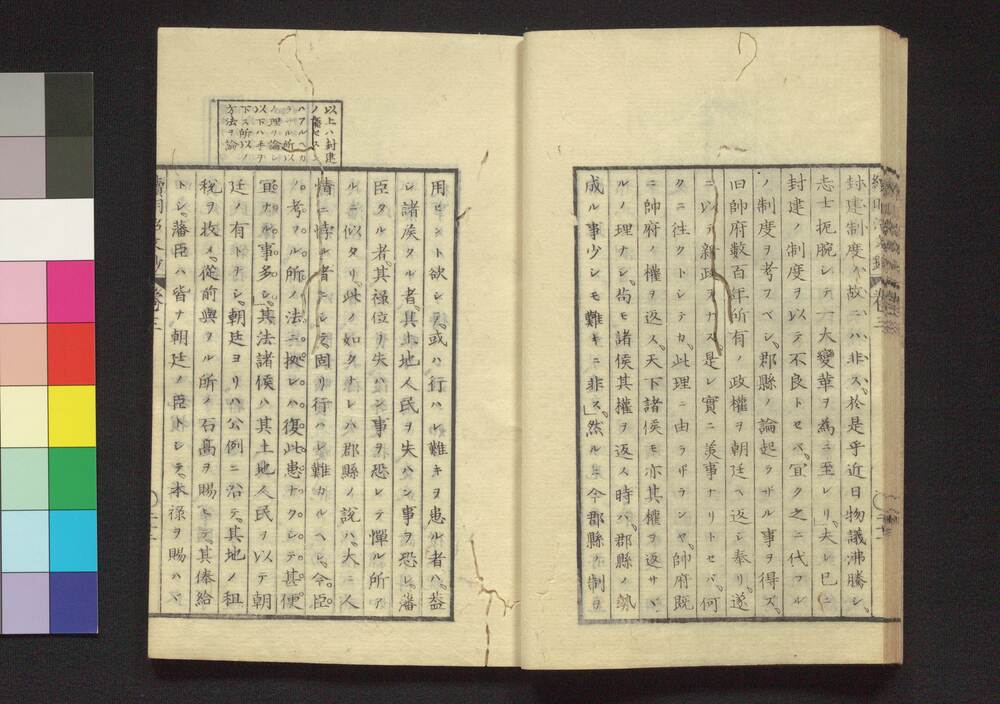 封建ノ制度ハ故ニハ非ス。於是乎近日物議沸騰シ。
志士扼腕シテ一大變革ヲ為ニ至レリ」夫レ已ニ
封建ノ制度ヲ以テ不良トセバ。宜ク之ニ代フル
ノ制度ヲ考フベシ。郡縣ノ論起ラザル事ヲ得ズ。
旧帥府數百年所有ノ政權ヲ朝廷ヘ返シ奉リ。遂
ニ以テ新政ヲナス。是レ實ニ美事ナリトセバ。何
クニ往クトシテカ。此理ニ由ラザランヤ。帥府既
ニ帥府ノ權ヲ返ス。天下諸侯モ亦其權ヲ返サヾ
ルノ理ナシ。苟モ諸侯其權ヲ返ス時バ。郡縣ノ勢
成ル事少シモ難キニ非ス」。然ルニ今郡縣ノ制ヲ
以上ハ封建
ハアルベカ
ラザル所以
ヲ理リ論シ
以下ハ手ヲ
下ス所以ノ
方法ヲ論
用ヒント欲シテ。或ハ行ハレ難キヲ患ル者ハ。蓋
シ諸矦タル者。其土地人民ヲ失ハン事ヲ恐レ。藩
臣タル者。其禄位ヲ失ハン事ヲ恐レテ憚ル所ア
ルニ似タリ。此ノ如クナレハ郡縣ノ說ハ。大ニ人
情ニ悖ル者ニシテ。固リ行ハレ難カルヘシ。今。臣
ノ考フル所ノ法ニ㨿レハ。復此患ナクシテ甚便
宜ナル事多シ。」其法諸侯ハ其土地人民ヲ以テ朝
廷ノ有トナシ。朝廷ヨリハ公例ニ沿テ。其地ノ租
税ヲ收メ。從前與フル所ノ石高ヲ賜トテ。其俸給
トシ。藩臣ハ皆ナ朝廷ノ臣トシテ。本禄ヲ賜ハヾ